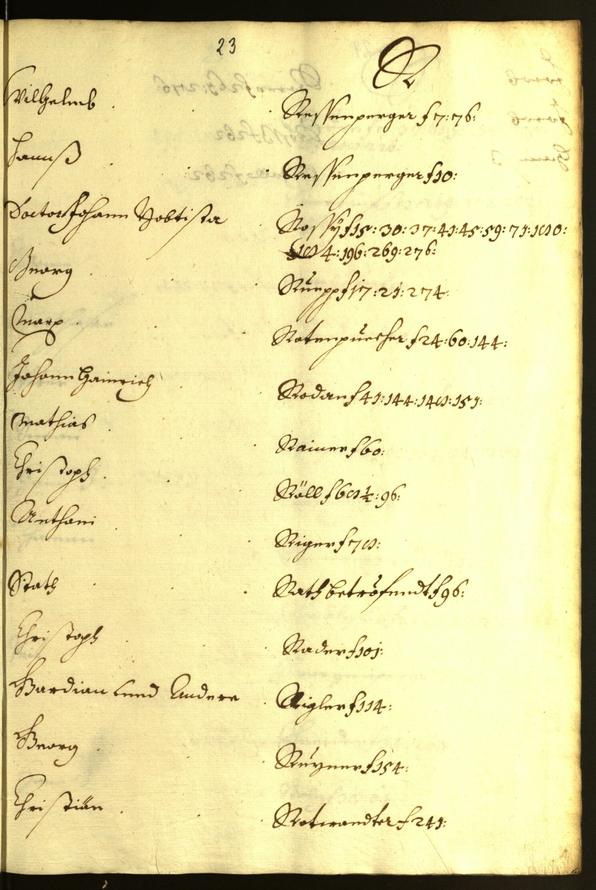 23
R
Wilhelmb Ressenperger f 7: 76:
Hannß Ressenperger f 10:
Doctor Johann Bobtista Rossÿ f 15: 30: 37: 41: 45: 59: 71:
4: 196: 269: 276:
Georg Rüepp f 17: 21: 274:
Marx Rotenpuecher f 24: 60: 144:
Johann Hainrich Rodan f 41: 144: 151:
Mathias Rainer f 60:
Christoph Röll 96:
Anthoni Riger
Stath Rath betröfendt f 96:
Christoph Rader f 101:
Gardian unnd Andere Rigler f 114:
Georg f 154:
Christian Rotwandter f 241: